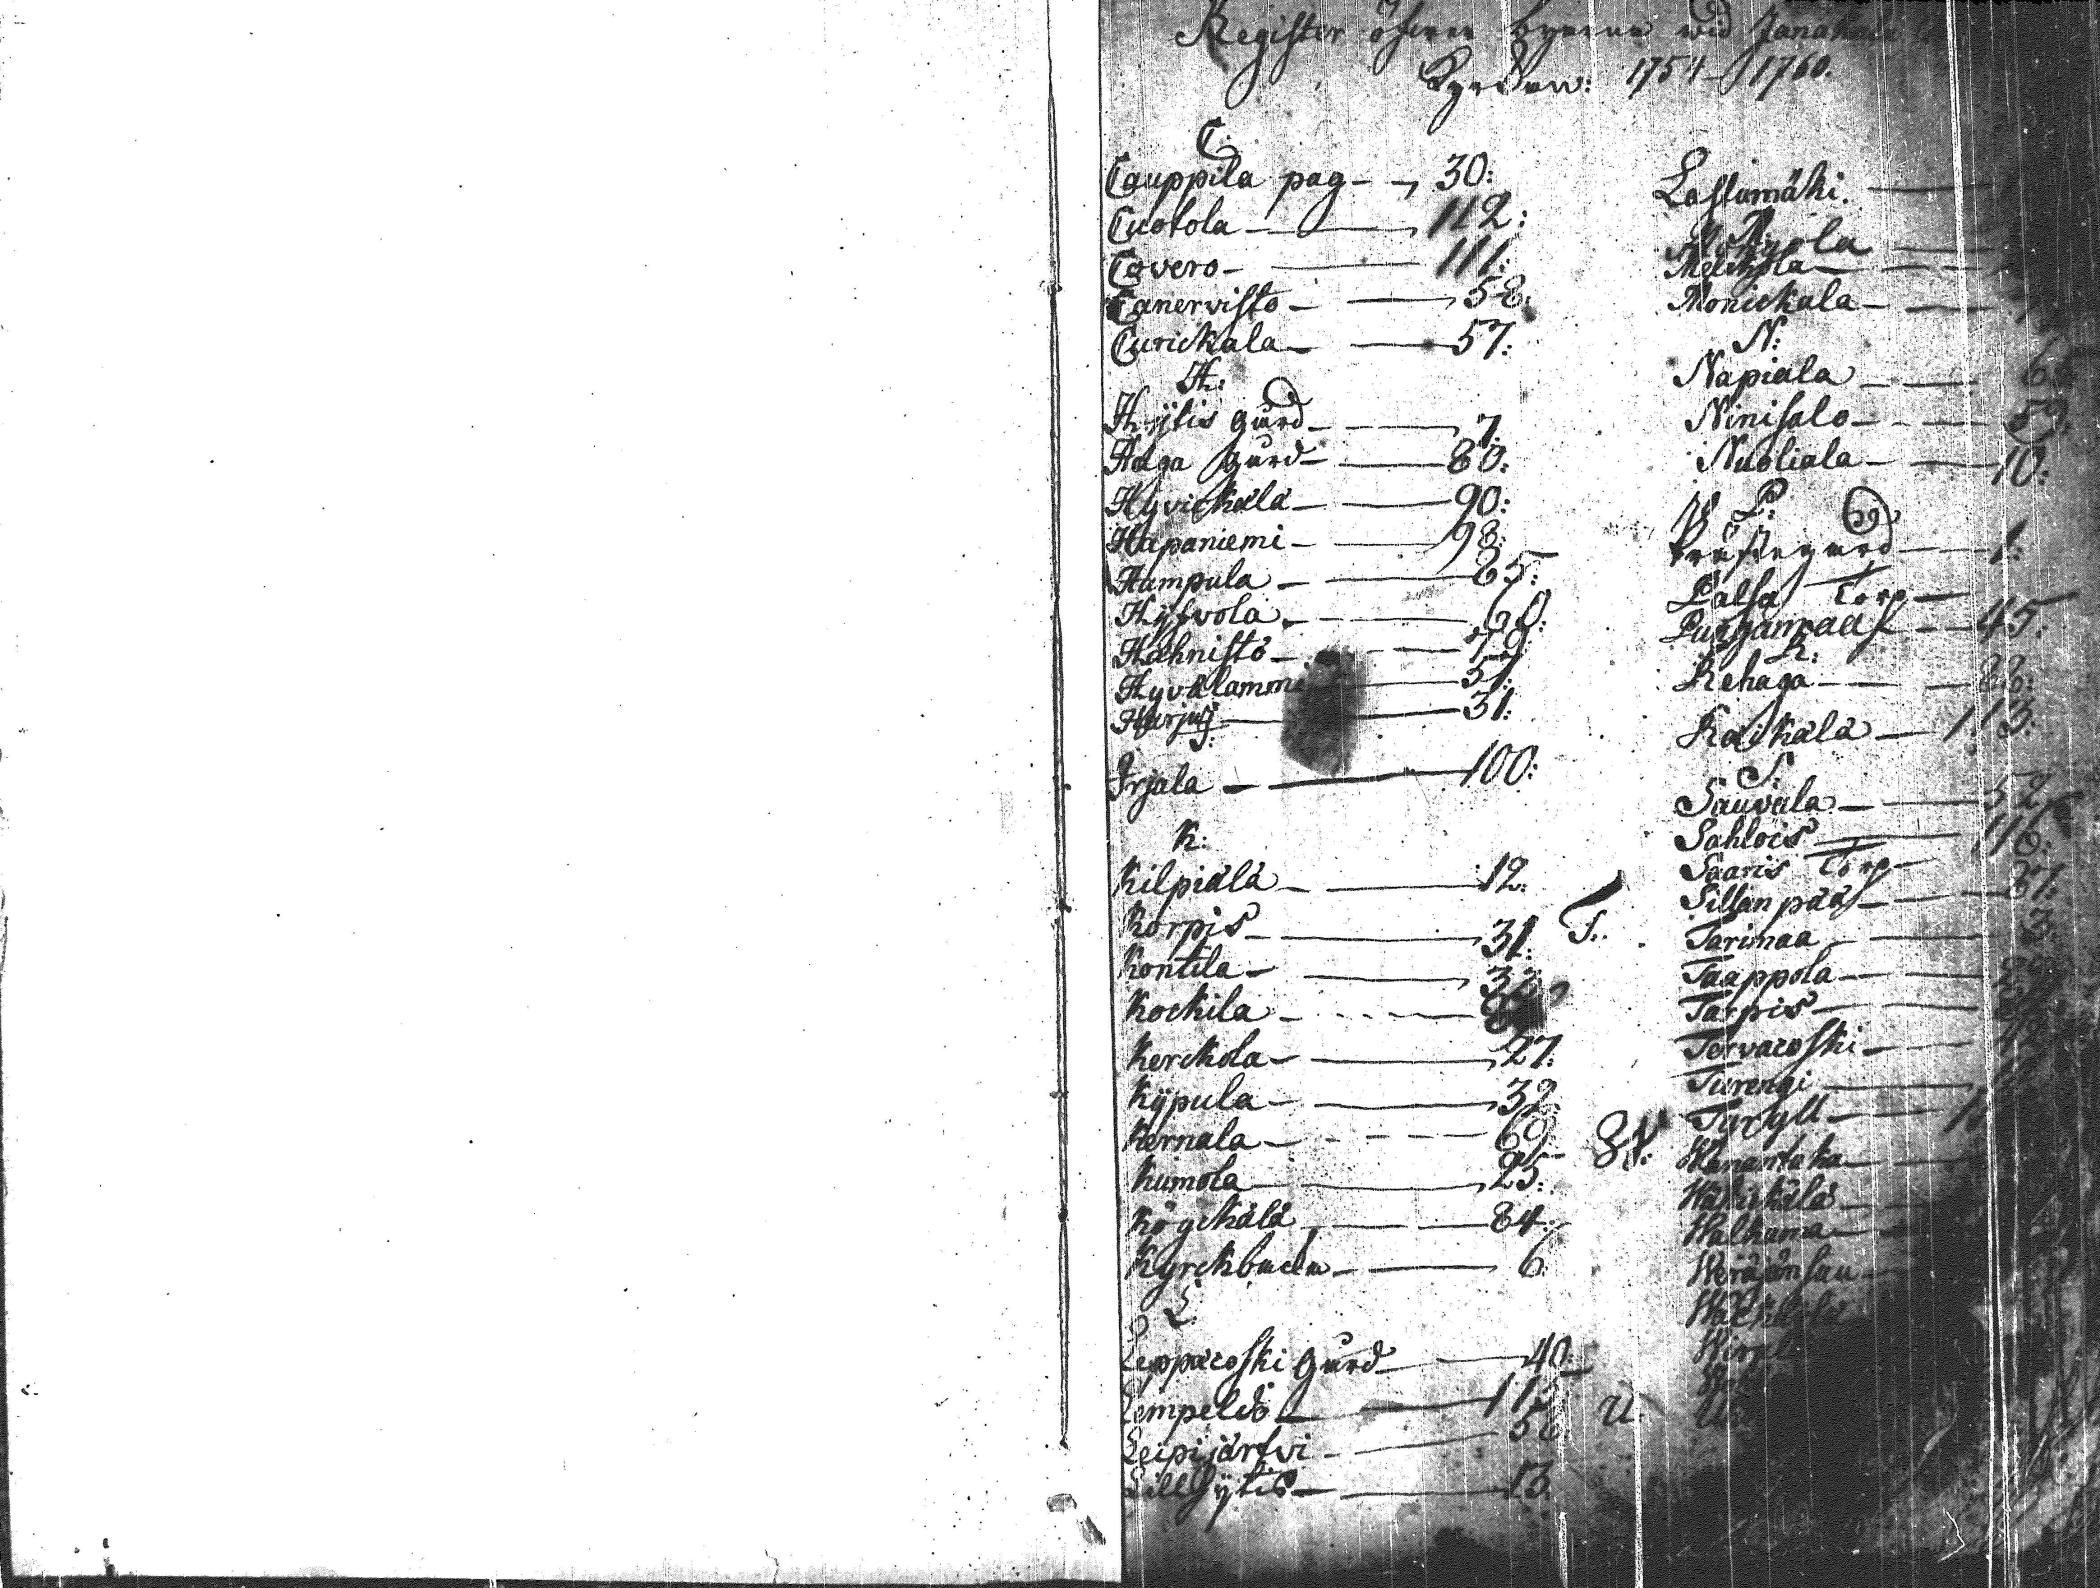 Register öfver byarne wid Janakala
Kyrkan: 1754 – 1760.
C:
Cauppila pag – 30:
Cuotola – 112:
Covero – 111:
Canervisto – 58:
Curickala – 57:
H:
Hytis gård – 7.
Haga gård – 80:
Hyvickälä – 90:
Hapaniemi – 98:
Hampula – 65:
Hyfvola – 60:
Hähnistö – 79:
Hyvälammi – 57:
Harju – 31:
J:
Irjala – 100:
K:
Kilpiälä – 12:
Korpis – 31:
Kontila – 33
Kockila –
Kerckola – 27:
Kijpula – 32
Kernala – 69:
Kumola – 25:
Kögckälä – 84:
Kyrckbacka – 6
L:
Leppäcoski gård – 40:
Lempeldö – 113
Leipijärfvi – 56:
Lillhytis – 13.
Lastumäki. –
M.
Melckola –
Monickala –
N:
Napiala –
Ninisalo – 59:
Nuoliala – 10:
P:
Prästegård – 1:
Pålsa Torp –
Punganpää – 45:
R:
Rehaga – 88:
Räikälä – 113:
S:
Sauvala – 52
Sahlois – 110:
Saaris Torp
Sillänpää – 87:
T:
Tarimaa –
Taappola –
Tarpis –
Tervacoski –
Turengi –
W:
Wanantaka –
Wähickälä –
Walkama –
Weräjänsuu –
U